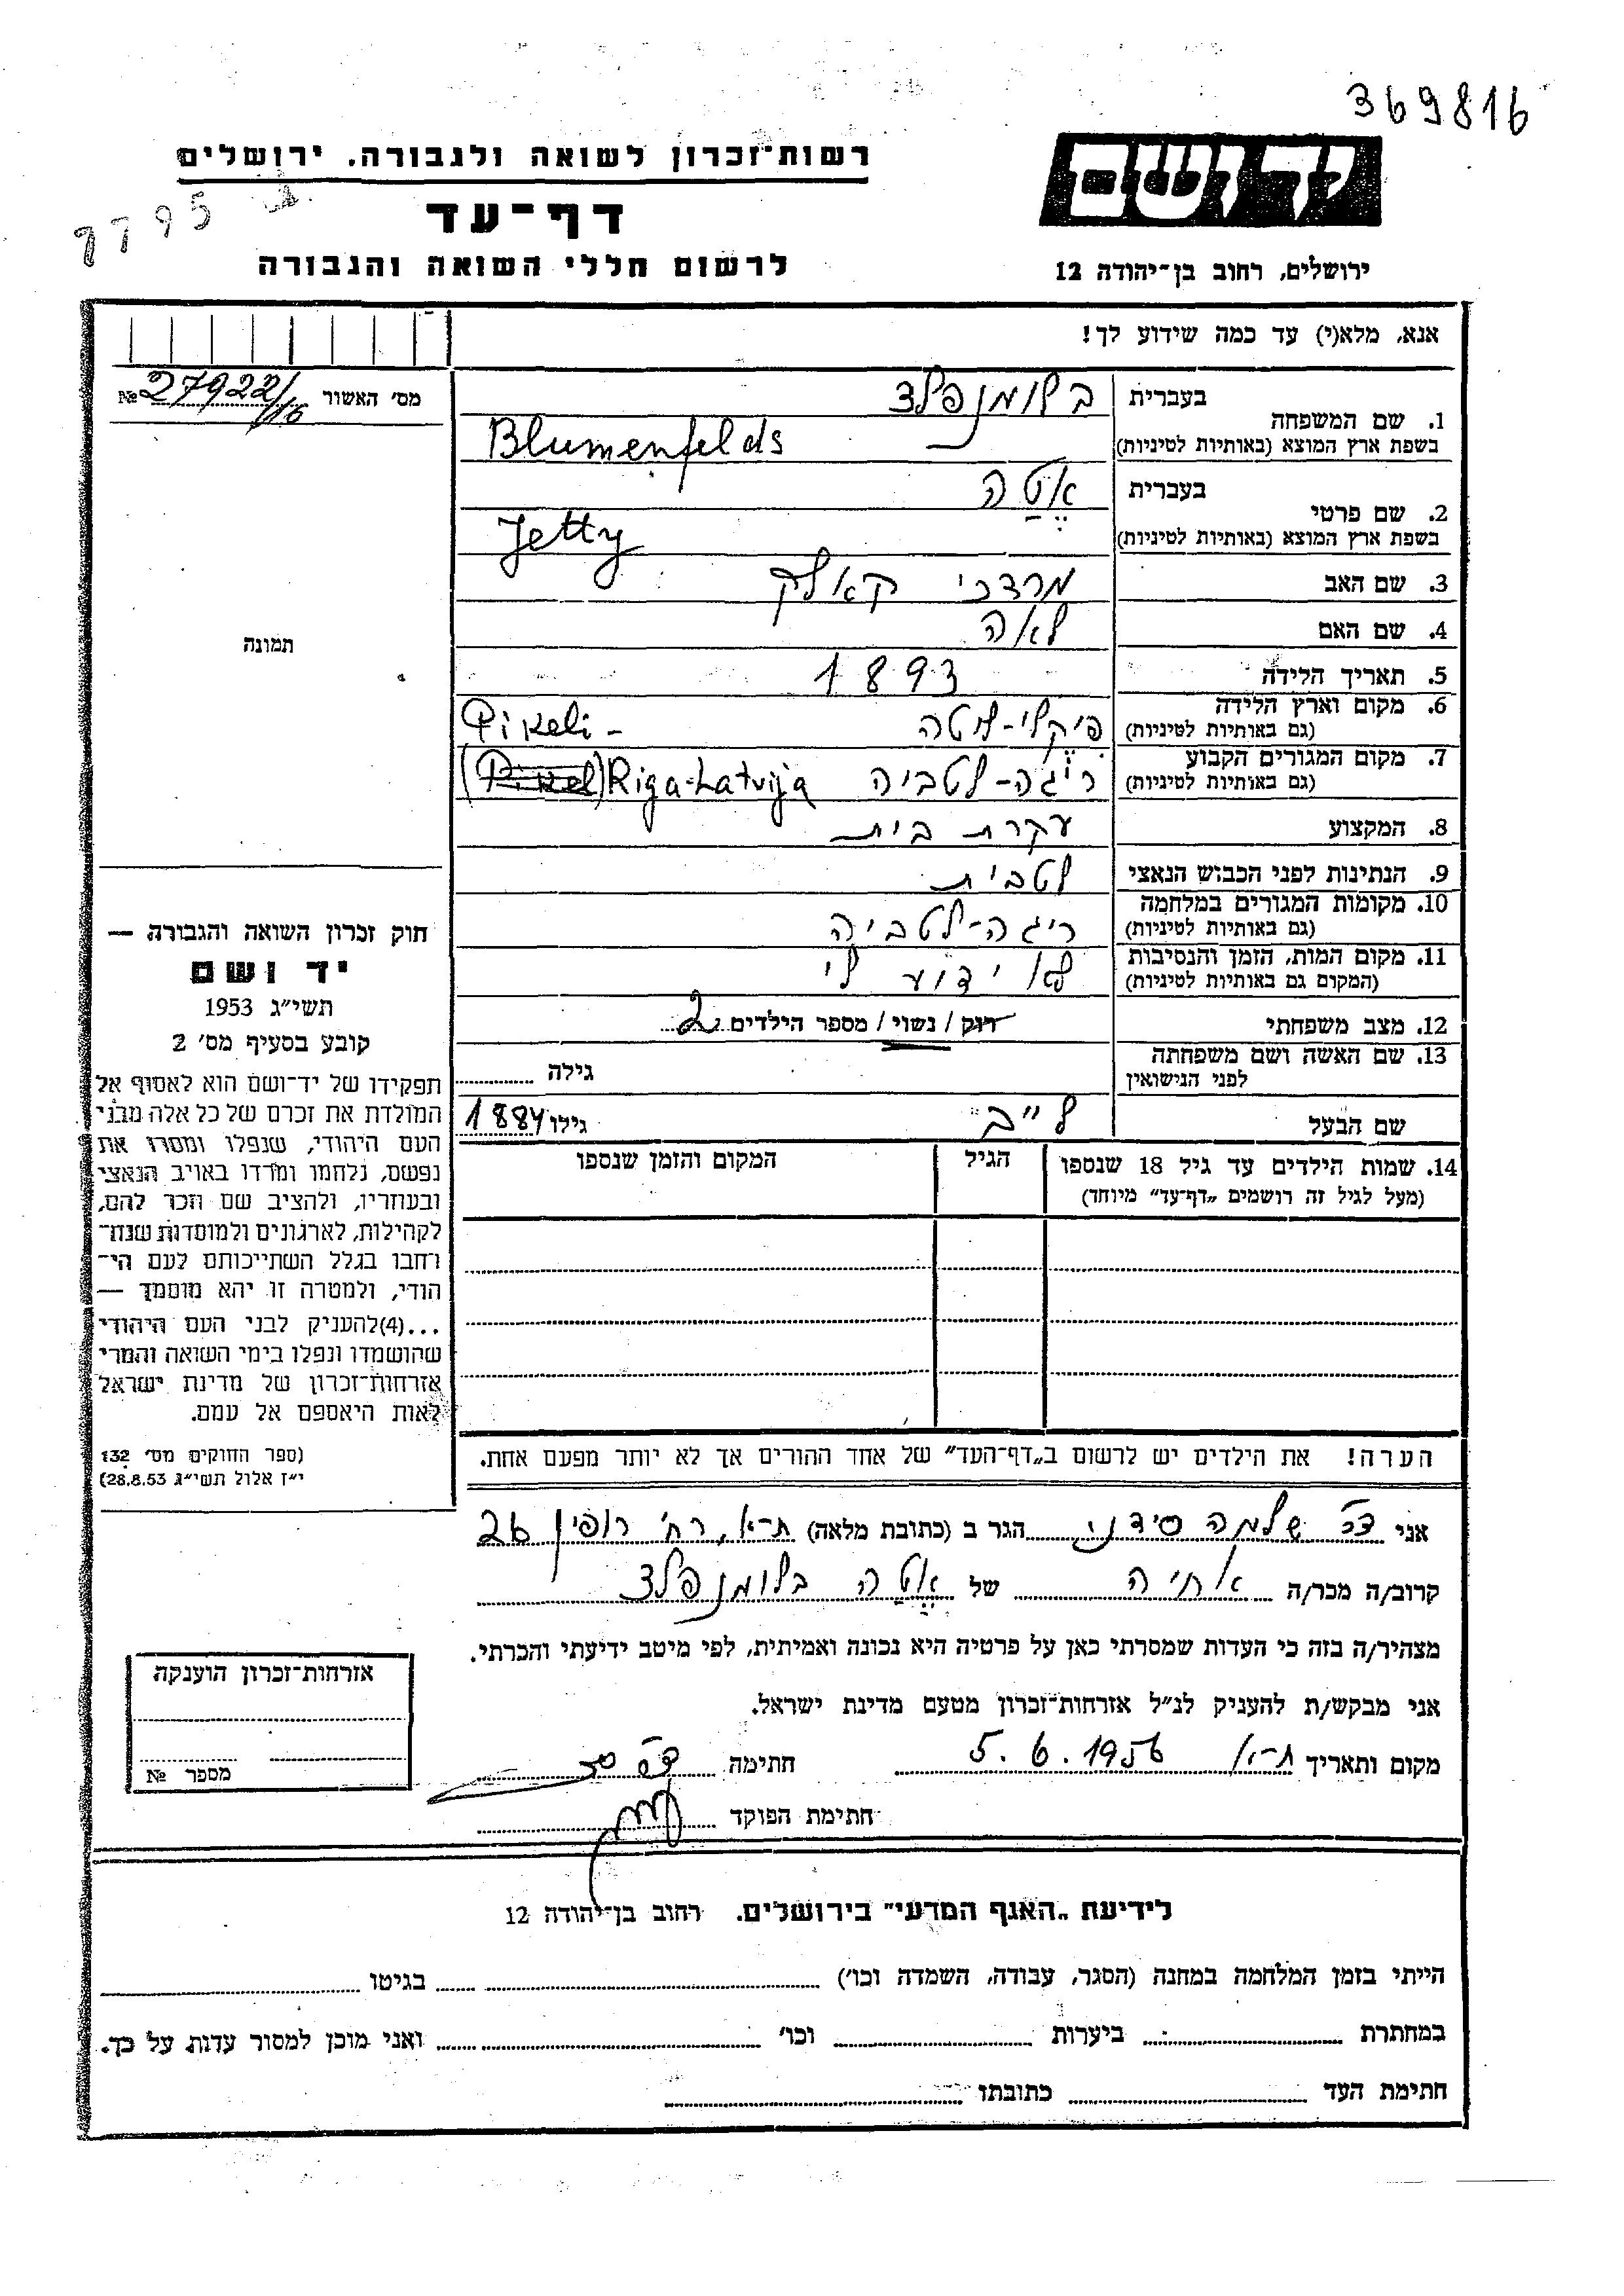 369816
יד ושם
רשות־זכרון לשואה ולגבורה. ירושלים
7795
דף־עד
לרשום חללי השואה והגבורה
ירושלים, רחוב בן־יהודה 12
אנא, מלא(י) עד כמה שידוע לך!
מס׳ האשור № 27922/16
1. שם המשפחה
בעברית בלומנפלד
בשפת ארץ המוצא (באותיות לטיניות) Blumenfelds
2. שם פרטי
בעברית אטה
בשפת ארץ המוצא (באותיות לטיניות) Jetty
3. שם האב מרדכי קאלק
4. שם האם לאה
תמונה
5. תאריך הלידה 1893
6. מקום וארץ הלידה
(גם באותיות לטיניות) פיקלי-ליטה Pikeli-
7. מקום המגורים הקבוע
(גם באותיות לטיניות) ריגה-לטביה (Pikel) Riga-Latvija
8. המקצוע עקרת בית
9. הנתינות לפני הכבוש הנאצי לטבית
10. מקומות המגורים במלחמה
(גם באותיות לטיניות) ריגה-לטביה
11. מקום המות, הזמן והנסיבות
(המקום גם באותיות לטיניות) לא ידוע לי
12. מצב משפחתי רוק / נשוי / מספר הילדים 2
13. שם האשה ושם משפחתה
לפני הנישואין גילה
שם הבעל ל״ב גילו 1884
14. שמות הילדים עד גיל 18 שנספו הגיל המקום והזמן שנספו
(מעל לגיל זה רושמים „דף־עד״ מיוחד)
חוק זכרון השואה והגבורה —
יד ושם
תשי״ג 1953
קובע בסעיף מס׳ 2
תפקידו של יד־ושם הוא לאסוף אל
המולדת את זכרם של כל אלה מבני
העם היהודי, שנפלו ומסרו את
נפשם, נלחמו ומרדו באויב הנאצי
ובעוזריו, ולהציב שם וזכר להם,
לקהילות, לארגונים ולמוסדות שנח־
רחבו בגלל השתייכותם לעם הי־
הודי, ולמטרה זו יהא מוסמך —
...(4)להעניק לבני העם היהודי
שהושמדו ונפלו בימי השואה והמרי
אזרחות־זכרון של מדינת ישראל
לאות היאספם אל עמם.
(ספר החוקים מס׳ 132
י״ז אלול תשי״ג 28.8.53)
הערה! את הילדים יש לרשום ב„דף־העד״ של אחד ההורים אך לא יותר מפעם אחת.
אני ד״ר שלמה סידני הגר ב (כתובת מלאה) ת-א, רח׳ רופין 26
קרוב/ה מכר/ה אחיה של אטה בלומנפלד
מצהיר/ה בזה כי העדות שמסרתי כאן על פרטיה היא נכונה ואמיתית, לפי מיטב ידיעתי והכרתי.
אני מבקש/ת להעניק לנ״ל אזרחות־זכרון מטעם מדינת ישראל.
מקום ותאריך ת-א 5.6.1956 חתימה
חתימת הפוקד
אזרחות־זכרון הוענקה
מספר №
לידיעת „האגף המדעי״ בירושלים. רחוב בן־יהודה 12
הייתי בזמן המלחמה במחנה (הסגר, עבודה, השמדה וכו׳) בגיטו
במחתרת ביערות וכו׳ ואני מוכן למסור עדות על כך.
חתימת העד כתובתו